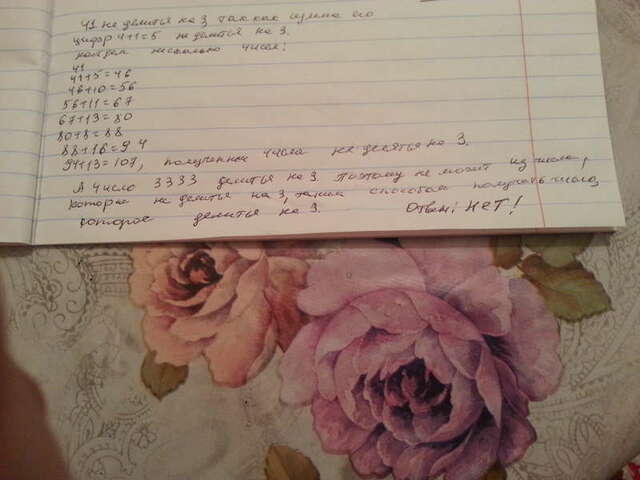 41 не делится на 3 так как сумма его
цифр 4+1=5 не делится на 3.
найдем несколько чисел:
41
41+5=46
46+10=56
56+11=67
67+13=80
80+8=88
88+16=94
94+13=107, полученные числа не делятся на 3.
А число 3333 делится на 3. Поэтому не может из числа,
которое не делится на 3, таким способом получить число,
которое делится на 3. Ответ: НЕТ!